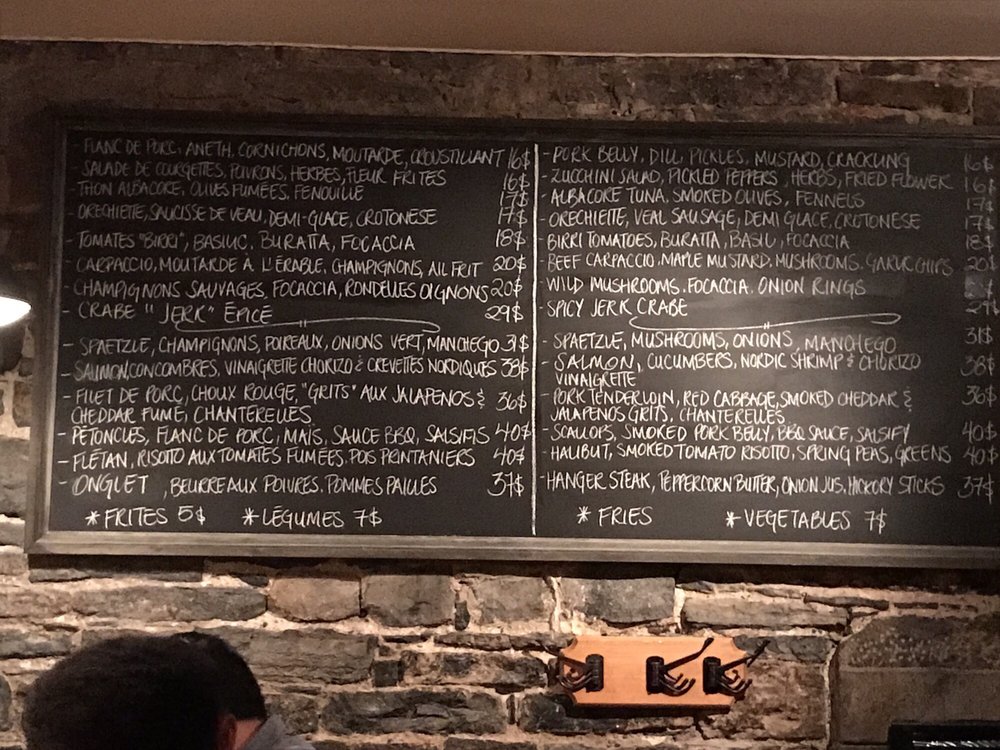 - FLANC DE PORC, ANETH, CORNICHONS, MOUTARDE, CROUSTILLANT 16$
- SALADE DE COURGETTES, POIVRONS, HERBES, FLEUR FRITES 16$
- THON ALBACORE, OLIVES FUMÉES, FENOUILLE 17$
- ORECHIETTE, SAUCISSE DE VEAU, DEMI-GLACE, CROTONESE 17$
- TOMATES "BIRRI", BASILIC, BURATTA, FOCACCIA 18$
- CARPACCIO, MOUTARDE À L'ÉRABLE, CHAMPIGNONS, AIL FRIT 20$
- CHAMPIGNONS SAUVAGES, FOCACCIA, RONDELLES OIGNONS 20$
- CRABE "JERK" ÉPICÉ 29$
- SPAETZLE, CHAMPIGNONS, POIREAUX, ONIONS VERT, MANCHEGO 31$
- SAUMON, CONCOMBRES, VINAIGRETTE CHORIZO & CREVETTES NORDIQUES 38$
- FILET DE PORC, CHOUX ROUGE, "GRITS" AUX JALAPENOS & 36$
CHEDDAR FUMÉ, CHANTERELLES
- PÉTONCLES, FLANC DE PORC, MAÏS, SAUCE BBQ, SALSIFIS 40$
- FLÉTAN, RISOTTO AUX TOMATES FUMÉES, POIS PRINTANIERS 40$
- ONGLET, BEURRE AUX POIVRES, POMMES PAILLES 37$
* FRITES 5$ * LÉGUMES 7$
- PORK BELLY, DILL, PICKLES, MUSTARD, CRACKLING 16$
- ZUCCHINI SALAD, PICKLED PEPPERS, HERBS, FRIED FLOWER 16$
ALBACORE TUNA, SMOKED OLIVES, FENNELS 17$
- ORECHIETTE, VEAL SAUSAGE, DEMI GLACE, CROTONESE 17$
- BIRRI TOMATOES, BURATTA, BASIL, FOCACCIA 18$
BEEF CARPACCIO, MAPLE MUSTARD, MUSHROOMS, GARLIC CHIPS 20$
WILD MUSHROOMS, FOCACCIA, ONION RINGS
SPICY JERK CRABE 29$
- SPAETZLE, MUSHROOMS, ONIONS, MANCHEGO 31$
- SALMON, CUCUMBERS, NORDIC SHRIMP & CHORIZO 38$
VINAIGRETTE
- PORK TENDERLOIN, RED CABBAGE, SMOKED CHEDDAR & 36$
JALAPENOS GRITS, CHANTERELLES
- SCALLOPS, SMOKED PORK BELLY, BBQ SAUCE, SALSIFY 40$
- HALIBUT, SMOKED TOMATO RISOTTO, SPRING PEAS, GREENS 40$
- HANGER STEAK, PEPPERCORN BUTTER, ONION JUS, HICKORY STICKS 37$
* FRIES * VEGETABLES 7$